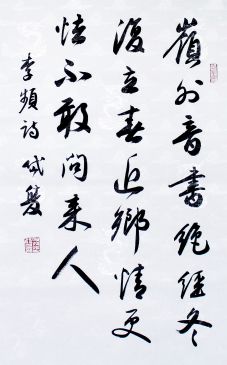 嶺外音書絶經冬
復立春近鄉情更
怯不敢問來人
李頻詩